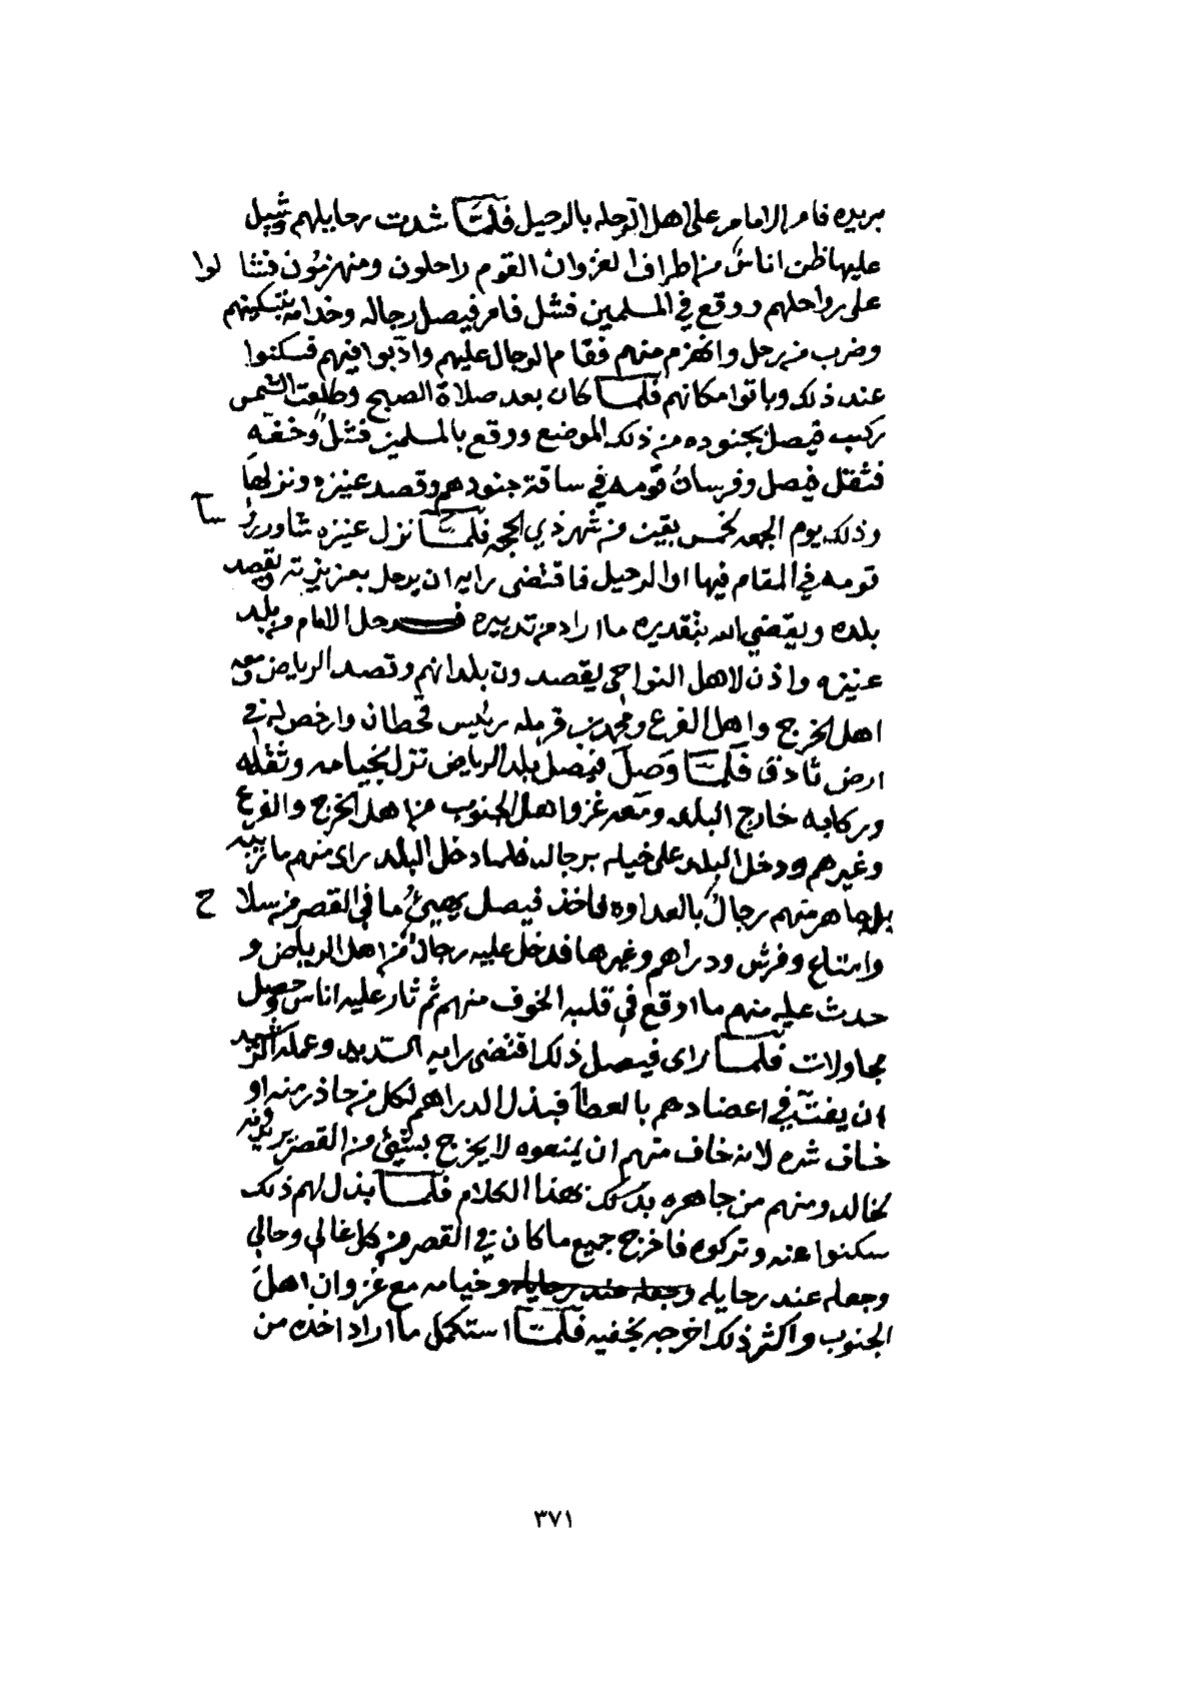 بريده فامر الامام على اهل الرحله بالرحيل فلما شدت رحايلهم وشيل
عليها ظن اناس من اطراف الغزوان القوم راحلون ومنهزمون فثالوا
على رواحلهم ووقع في المسلمين فشل فامر فيصل رجاله وخدامه بتسكينهم
وضرب من رحل وانهزم منهم فقام الرجال عليهم وادبوا فيهم فسكنوا
عند ذلك وباتوا مكانهم فلما كان بعد صلاة الصبح وطلعت الشمس
ركب فيصل بجنوده من ذلك الموضع ووقع بالمسلمين فشل وخفه
فثقل فيصل وفرسان قومه في ساقة جنودهم وقصد عنيزه ونزلها
وذلك يوم الجمعه لخمس بقيت من شهر ذي الحجه فلما نزل عنيزه شاور رؤسا
قومه في المقام فيها او الرحيل فاقتضى رايه ان يرحل بعزيزته يقصد
بلده ويقضي الله بتقديره ما اراد من تدبيره فرحل الامام من بلد
عنيزه واذن لاهل النواحي يقصدون بلدانهم وقصد الرياض معه
اهل الخرج واهل الفرع ومحمد بن قرمله رئيس قحطان وارخص له في
ارض ثادق فلما وصل فيصل بلد الرياض نزل بخيامه وثقله
وركابه خارج البلد ومعه غزو اهل الجنوب من اهل الخرج والفرع
وغيرهم ودخل البلد على خيله برجاله فلما دخل البلد راى منهم ما يريبه
بل جاهر منهم رجال بالعداوه فاخذ فيصل يهيئ ما في القصر من سلاح
وامتاع وفرش ودراهم وغيرها فدخل عليه رجال من اهل الرياض و
حدث عليه منهم ما اوقع في قلبه الخوف منهم ثم ثار عليه اناس وحصل
مجاولات فلما راى فيصل ذلك اقتضى رايه السديد وعمله الرشيد
ان يفت في اعضادهم بالعطا فبذل الدراهم لكل من حاذر منه او
خاف شره لانه خاف منهم ان يمنعوه لا يخرج بشئ من القصر يريدونه
لخالد ومنهم من جاهره بذلك بهذا الكلام فلما بذل لهم ذلك
سكنوا عنه وتركوه فاخرج جميع ما كان في القصر من كل غالي وحالي
وجعله عند رحايله وجعله عند رحايله وخيامه مع غزوان اهل
الجنوب واكثر ذلك اخرجه بخفيه فلما استكمل ما اراد اخذه من
٣٧١